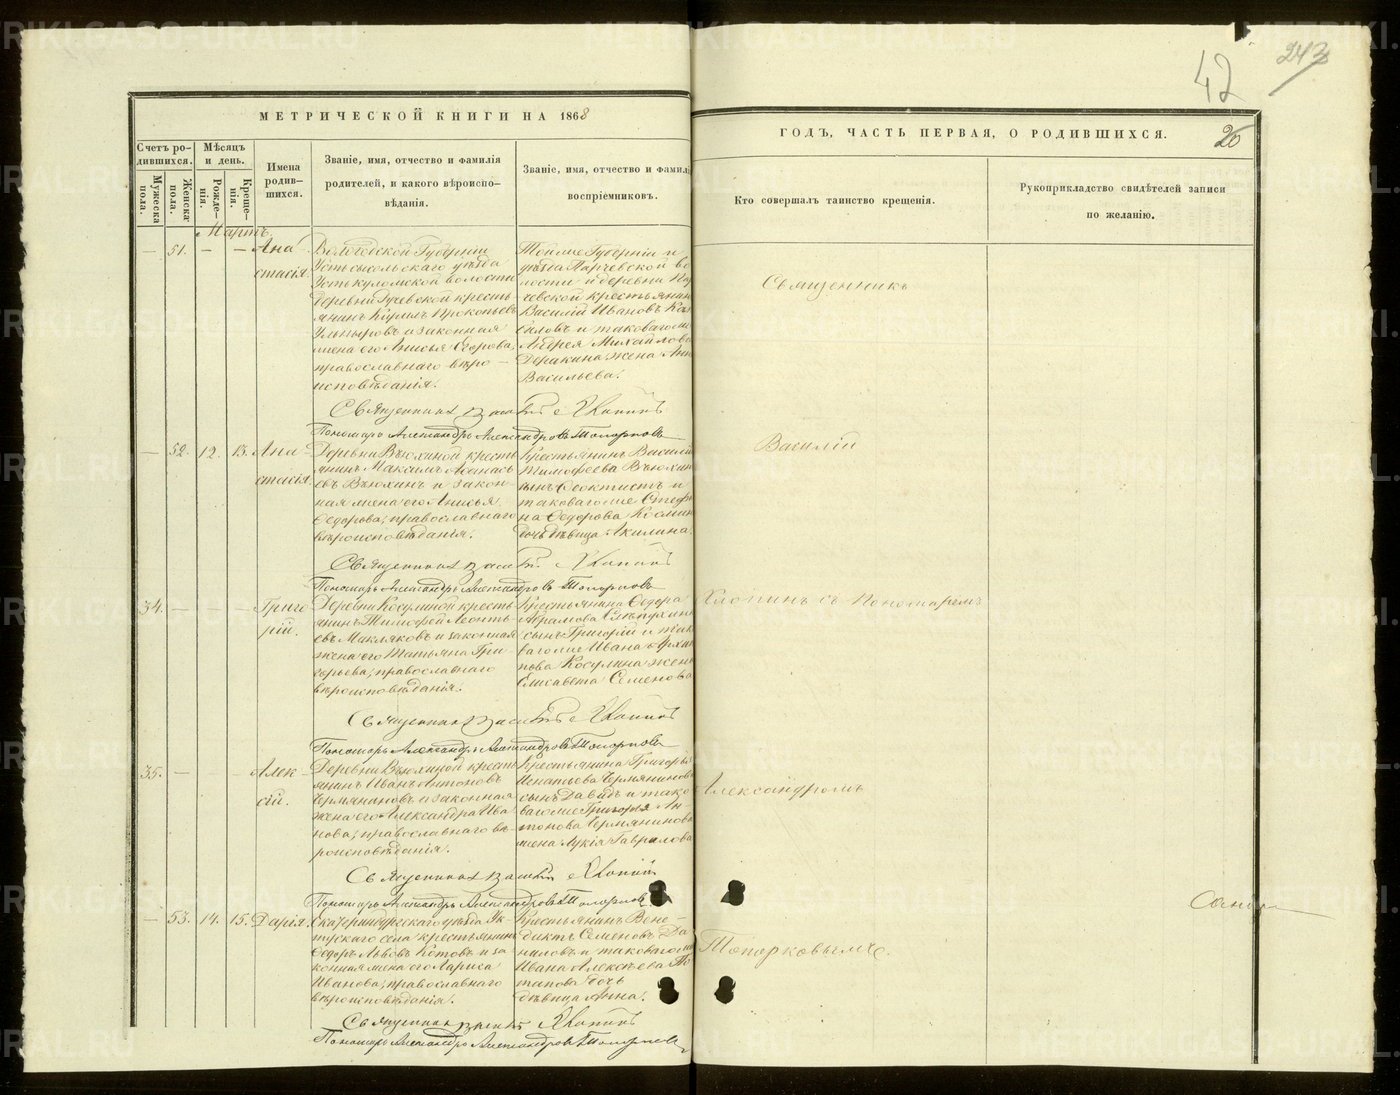 42
243
МЕТРИЧЕСКОЙ КНИГИ НА 1868
ГОДЪ, ЧАСТЬ ПЕРВАЯ, О РОДИВШИХСЯ.
26
Счетъ ро-
дившихся.
Мужеска
пола.
Женска
пола.
Мѣсяцъ
и день.
Рожде-
нія.
Креще-
нія.
Имена
родив-
шихся.
Званіе, имя, отчество и фамилія
родителей, и какого вѣроиспо-
вѣданія.
Званіе, имя, отчество и фамилі
воспріемниковъ.
Кто совершалъ таинство крещенія.
Рукоприкладство свидѣтелей записи
по желанію.
Мартъ.
— 51. — — Ана
стасія.
Вологодской Губерніи
Устьсысольскаго уѣзда
Устькуломской волости
деревни кресть-
янинъ Кирилъ Прокопьевъ
Ульныровъ и законная
жена его Анисья Егорова,
православнаго вѣро-
исповѣданія.
Тоилие Губерніи и
уѣзда волости и деревни
крестьянинъ
Василій Ивановъ
и таковагоже
Андрея Михайлова
жена Анна
Васильева.
Священникъ Василій Хлопинъ
Пономарь Александръ Александровъ Топорковъ
— 52. 12. 13. Ана-
стасія.
Деревни Вьюхиной кресть
янинъ Максимъ Аѳанась
евъ Вьюхинъ и закон-
ная жена его Анисья
Ѳедорова, православнаго
вѣроисповѣданія.
Крестьянинъ Василій
Тимофеева Вьюхин
сынъ Ѳеоктистъ и
таковагоже Стефа
на Ѳедорова Космин
дочь дѣвица Акилина.
Священникъ Василій Хлопинъ
Пономарь Александръ Александровъ Топорковъ
34. — — — Григо
рій.
Деревни Косулиной кресть
янинъ Тимофей Леонть
евъ Макляковъ и законная
жена его Татьяна Гри-
горьева, православнаго
вѣроисповѣданія.
Крестьянина Ѳедора
Абрамова
сынъ Григорій и так
вагоже Ивана Архи
пова Косулина жена
Елисавета Семенова
Священникъ Василій Хлопинъ
Пономарь Александръ Александровъ Топорковъ
35. — — — Алек-
сій.
Деревни Вьюхиной кресть
янинъ Иванъ Антоновъ
Чермяниновъ и законная
жена его Александра Ива
нова, православнаго вѣ-
роисповѣданія.
Крестьянина Григорья
Игнатьева Чермянинова
сынъ Давидъ и тако
вагоже Григорья Ан-
тонова Чермянинова
жена Лукія Гаврилова
Священникъ Василій Хлопинъ
Пономарь Александръ Александровъ Топорковъ
— 53. 14. 15. Дарія.
Екатеринбургскаго уѣзда Ук
тусскаго села крестьянинъ
Ѳедоръ Львовъ Котовъ и за
конная жена его Лариса
Иванова, православнаго
вѣроисповѣданія.
Крестьянинъ Вене-
диктъ Семеновъ Да-
ниловъ и таковагоже
Ивана Алексѣева По
тапова дочь
дѣвица Анна.
Священникъ Василій Хлопинъ
Пономарь Александръ Александровъ Топорковъ
Священникъ
Василій
Хлопинъ съ Пономаремъ
Александромъ
Топорковымъ.